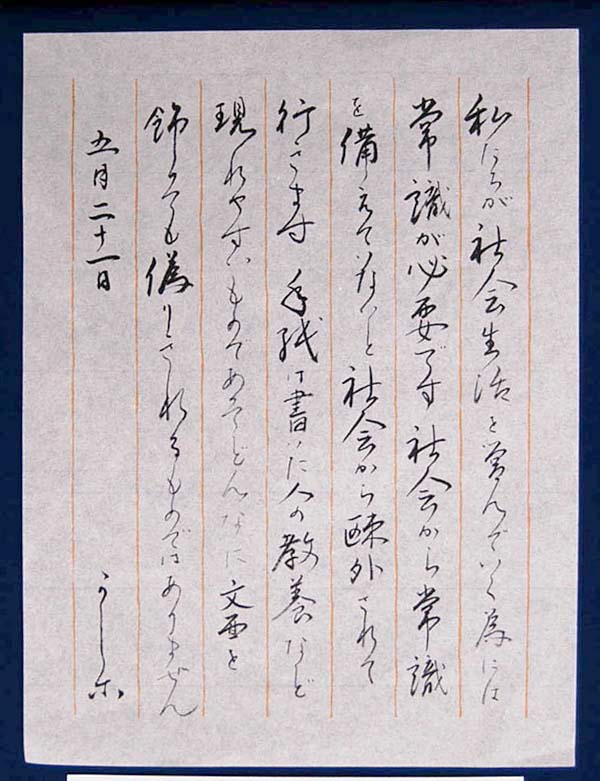 私たちが社会生活を営んでいく為には
常識が必要です社会から常識
を備えていないと社会から疎外されて
行きます手紙は書いた人の教養など
現れやすいものであってどんなに文面を
飾っても偽りきれるものではありません
五月二十一日